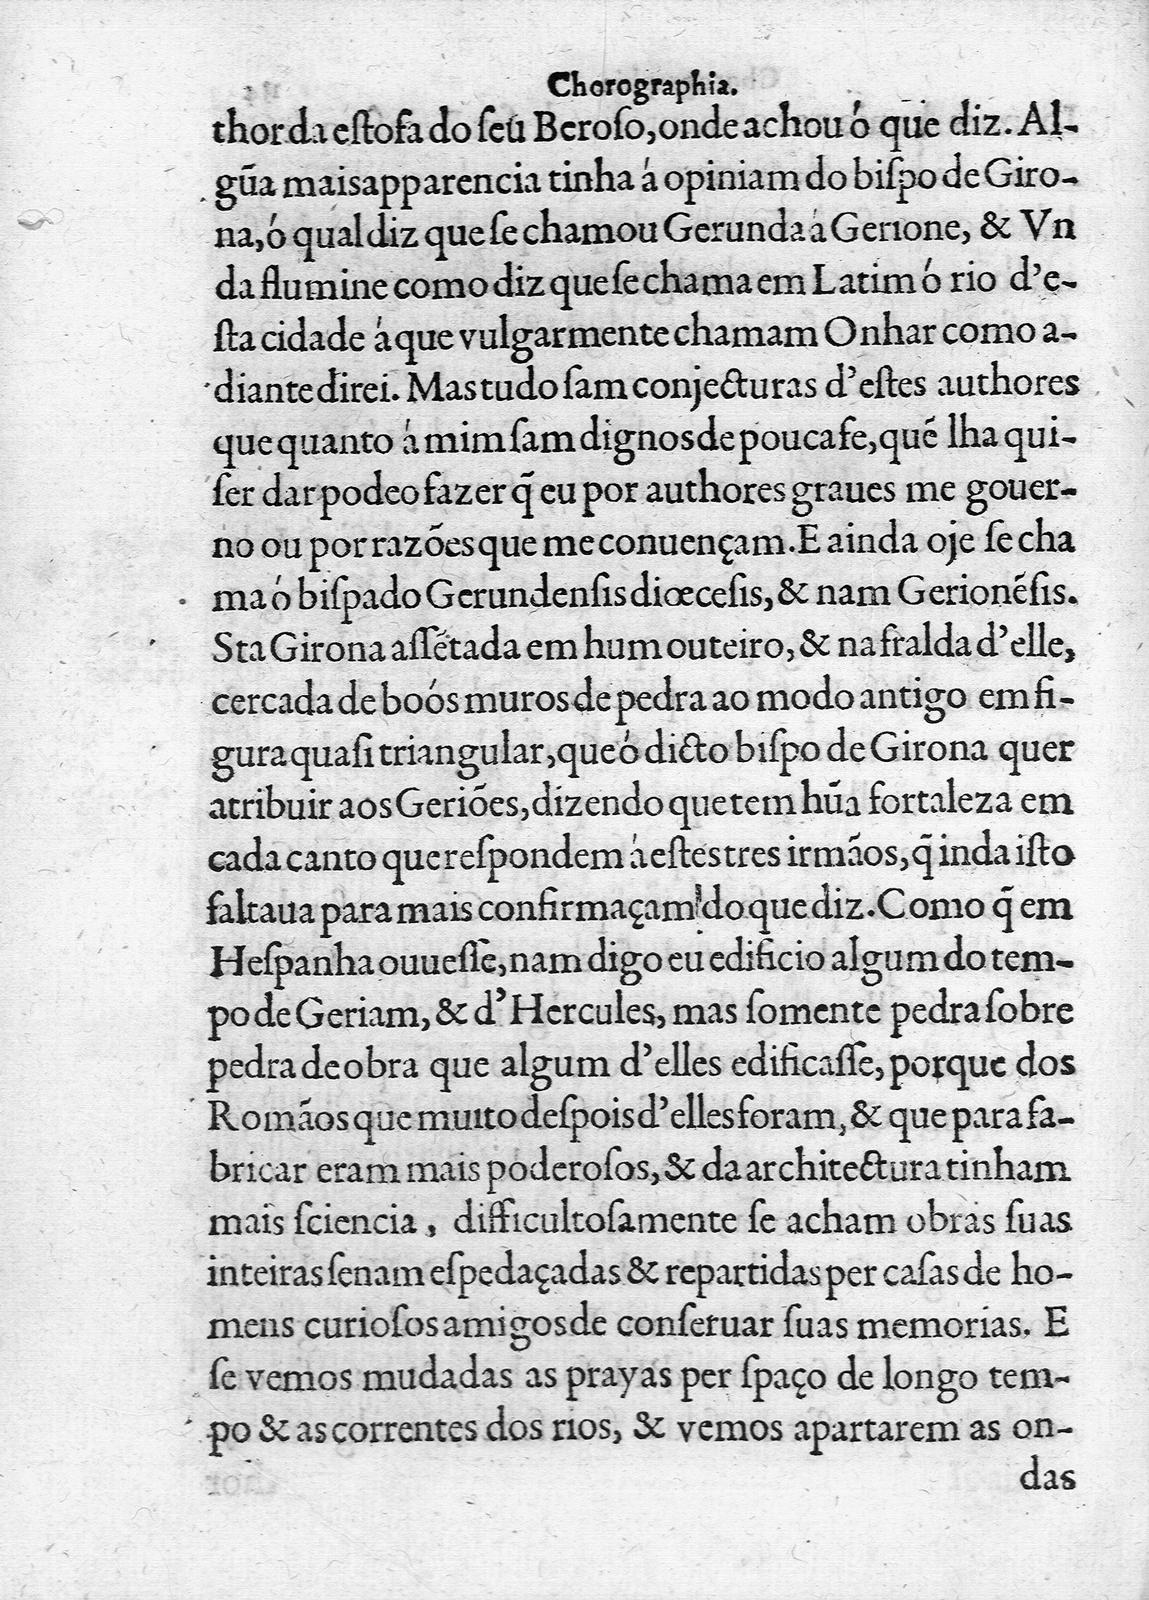 Chorographia.
thor da eſtofa do ſeu Beroſo, onde achou ó que diz. Al-
gũa mais apparencia tinha á opiniam do biſpo de Giro-
na, ó qual diz que ſe chamou Gerunda á Gerione, & Vn
da flumine como diz que ſe chama em Latim ó rio d'e-
ſta cidade á que vulgarmente chamam Onhar como a-
diante direi. Mas tudo ſam conjecturas d'eſtes authores
que quanto á mim ſam dignos de pouca fe, quẽ lha qui-
ſer dar podeo fazer q̃ eu por authores graues me gouer-
no ou por razões que me conuençam. E ainda oje ſe cha
ma ó biſpado Gerundenſis diœceſis, & nam Gerionẽſis.
Sta Girona aſſẽtada em hum outeiro, & na fralda d'elle,
cercada de boós muros de pedra ao modo antigo em fi-
gura quaſi triangular, que ó dicto biſpo de Girona quer
atribuir aos Geriões, dizendo que tem hũa fortaleza em
cada canto que reſpondem á eſtes tres irmãos, q̃ inda iſto
faltaua para mais confirmaçam do que diz. Como q̃ em
Heſpanha ouueſſe, nam digo eu edificio algum do tem-
po de Geriam, & d'Hercules, mas ſomente pedra ſobre
pedra de obra que algum d'elles edificaſſe, porque dos
Romãos que muito deſpois d'elles foram, & que para fa-
bricar eram mais poderoſos, & da architectura tinham
mais ſciencia, difficultoſamente ſe acham obras ſuas
inteiras ſenam eſpedaçadas & repartidas per caſas de ho-
mens curioſos amigos de conſeruar ſuas memorias. E
ſe vemos mudadas as prayas per ſpaço de longo tem-
po & as correntes dos rios, & vemos apartarem as on-
das